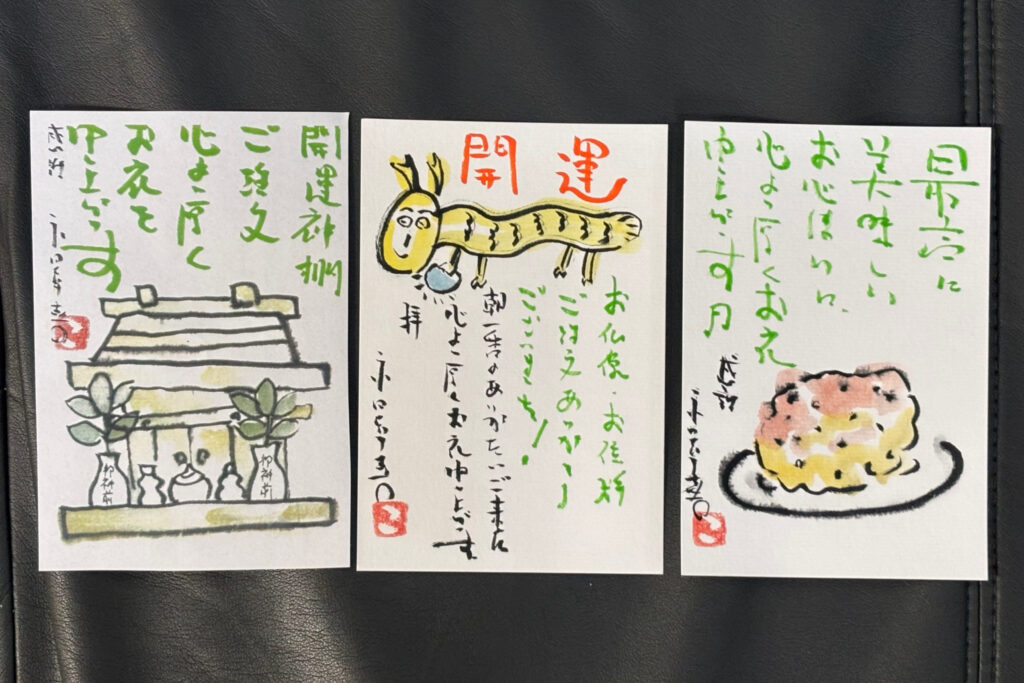 開運神棚
ご注文
心より厚く
お礼を
申し上げます
感謝
御神前
御神前
開運
お仏像・お位牌
ご注文ありがとう
ございます!
朝一番のありがたいご来店
心より厚くお礼申し上げます
拝
最高に
美味しい
お心づかい
心より厚くお礼
申し上げます
感謝